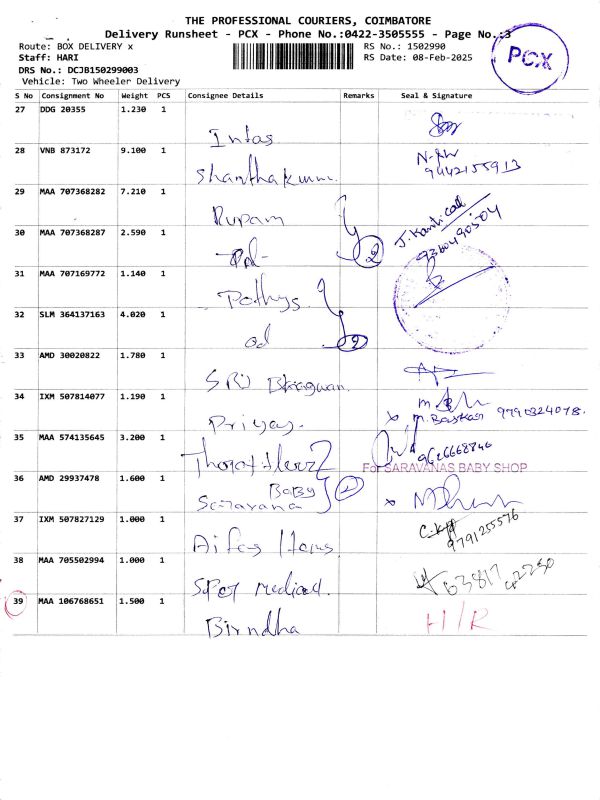 THE PROFESSIONAL COURIERS, COIMBATORE
Delivery Runsheet - PCX - Phone No.:0422-3505555 - Page No.:3
Route: BOX DELIVERY x
RS No.: 1502990
Staff: HARI
RS Date: 08-Feb-2025
DRS No.: DCJB150299003
Vehicle: Two Wheeler Delivery
PCX
S No Consignment No Weight PCS Consignee Details Remarks Seal & Signature
27 DDG 20355 1.230 1 Intas
28 VNB 873172 9.100 1 Shanthakumar 9442155913
29 MAA 707368282 7.210 1 Rupam
30 MAA 707368287 2.590 1 2 9360490504
31 MAA 707169772 1.140 1 Pothys
32 SLM 364137163 4.020 1 od 2
33 AMD 30020822 1.780 1 SRI Bhagwan.
34 IXM 507814077 1.190 1 Priyas. x M. Baskar 9790324078.
35 MAA 574135645 3.200 1 9626668846
For SARAVANAS BABY SHOP
36 AMD 29937478 1.600 1 Baby Saravana 2 x
37 IXM 507827129 1.000 1 9791255576
38 MAA 705502994 1.000 1 Medical
39 MAA 106768651 1.500 1 Birndha H/R